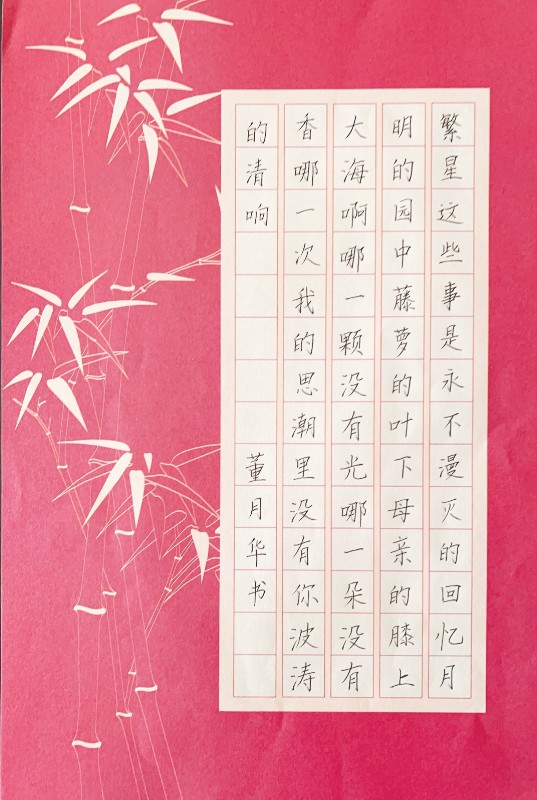 繁星这些事是永不漫灭的回忆月
明的园中藤萝的叶下母亲的膝上
大海啊哪一颗没有光哪一朵没有
香哪一次我的思潮里没有你波涛
的清响 董月华书